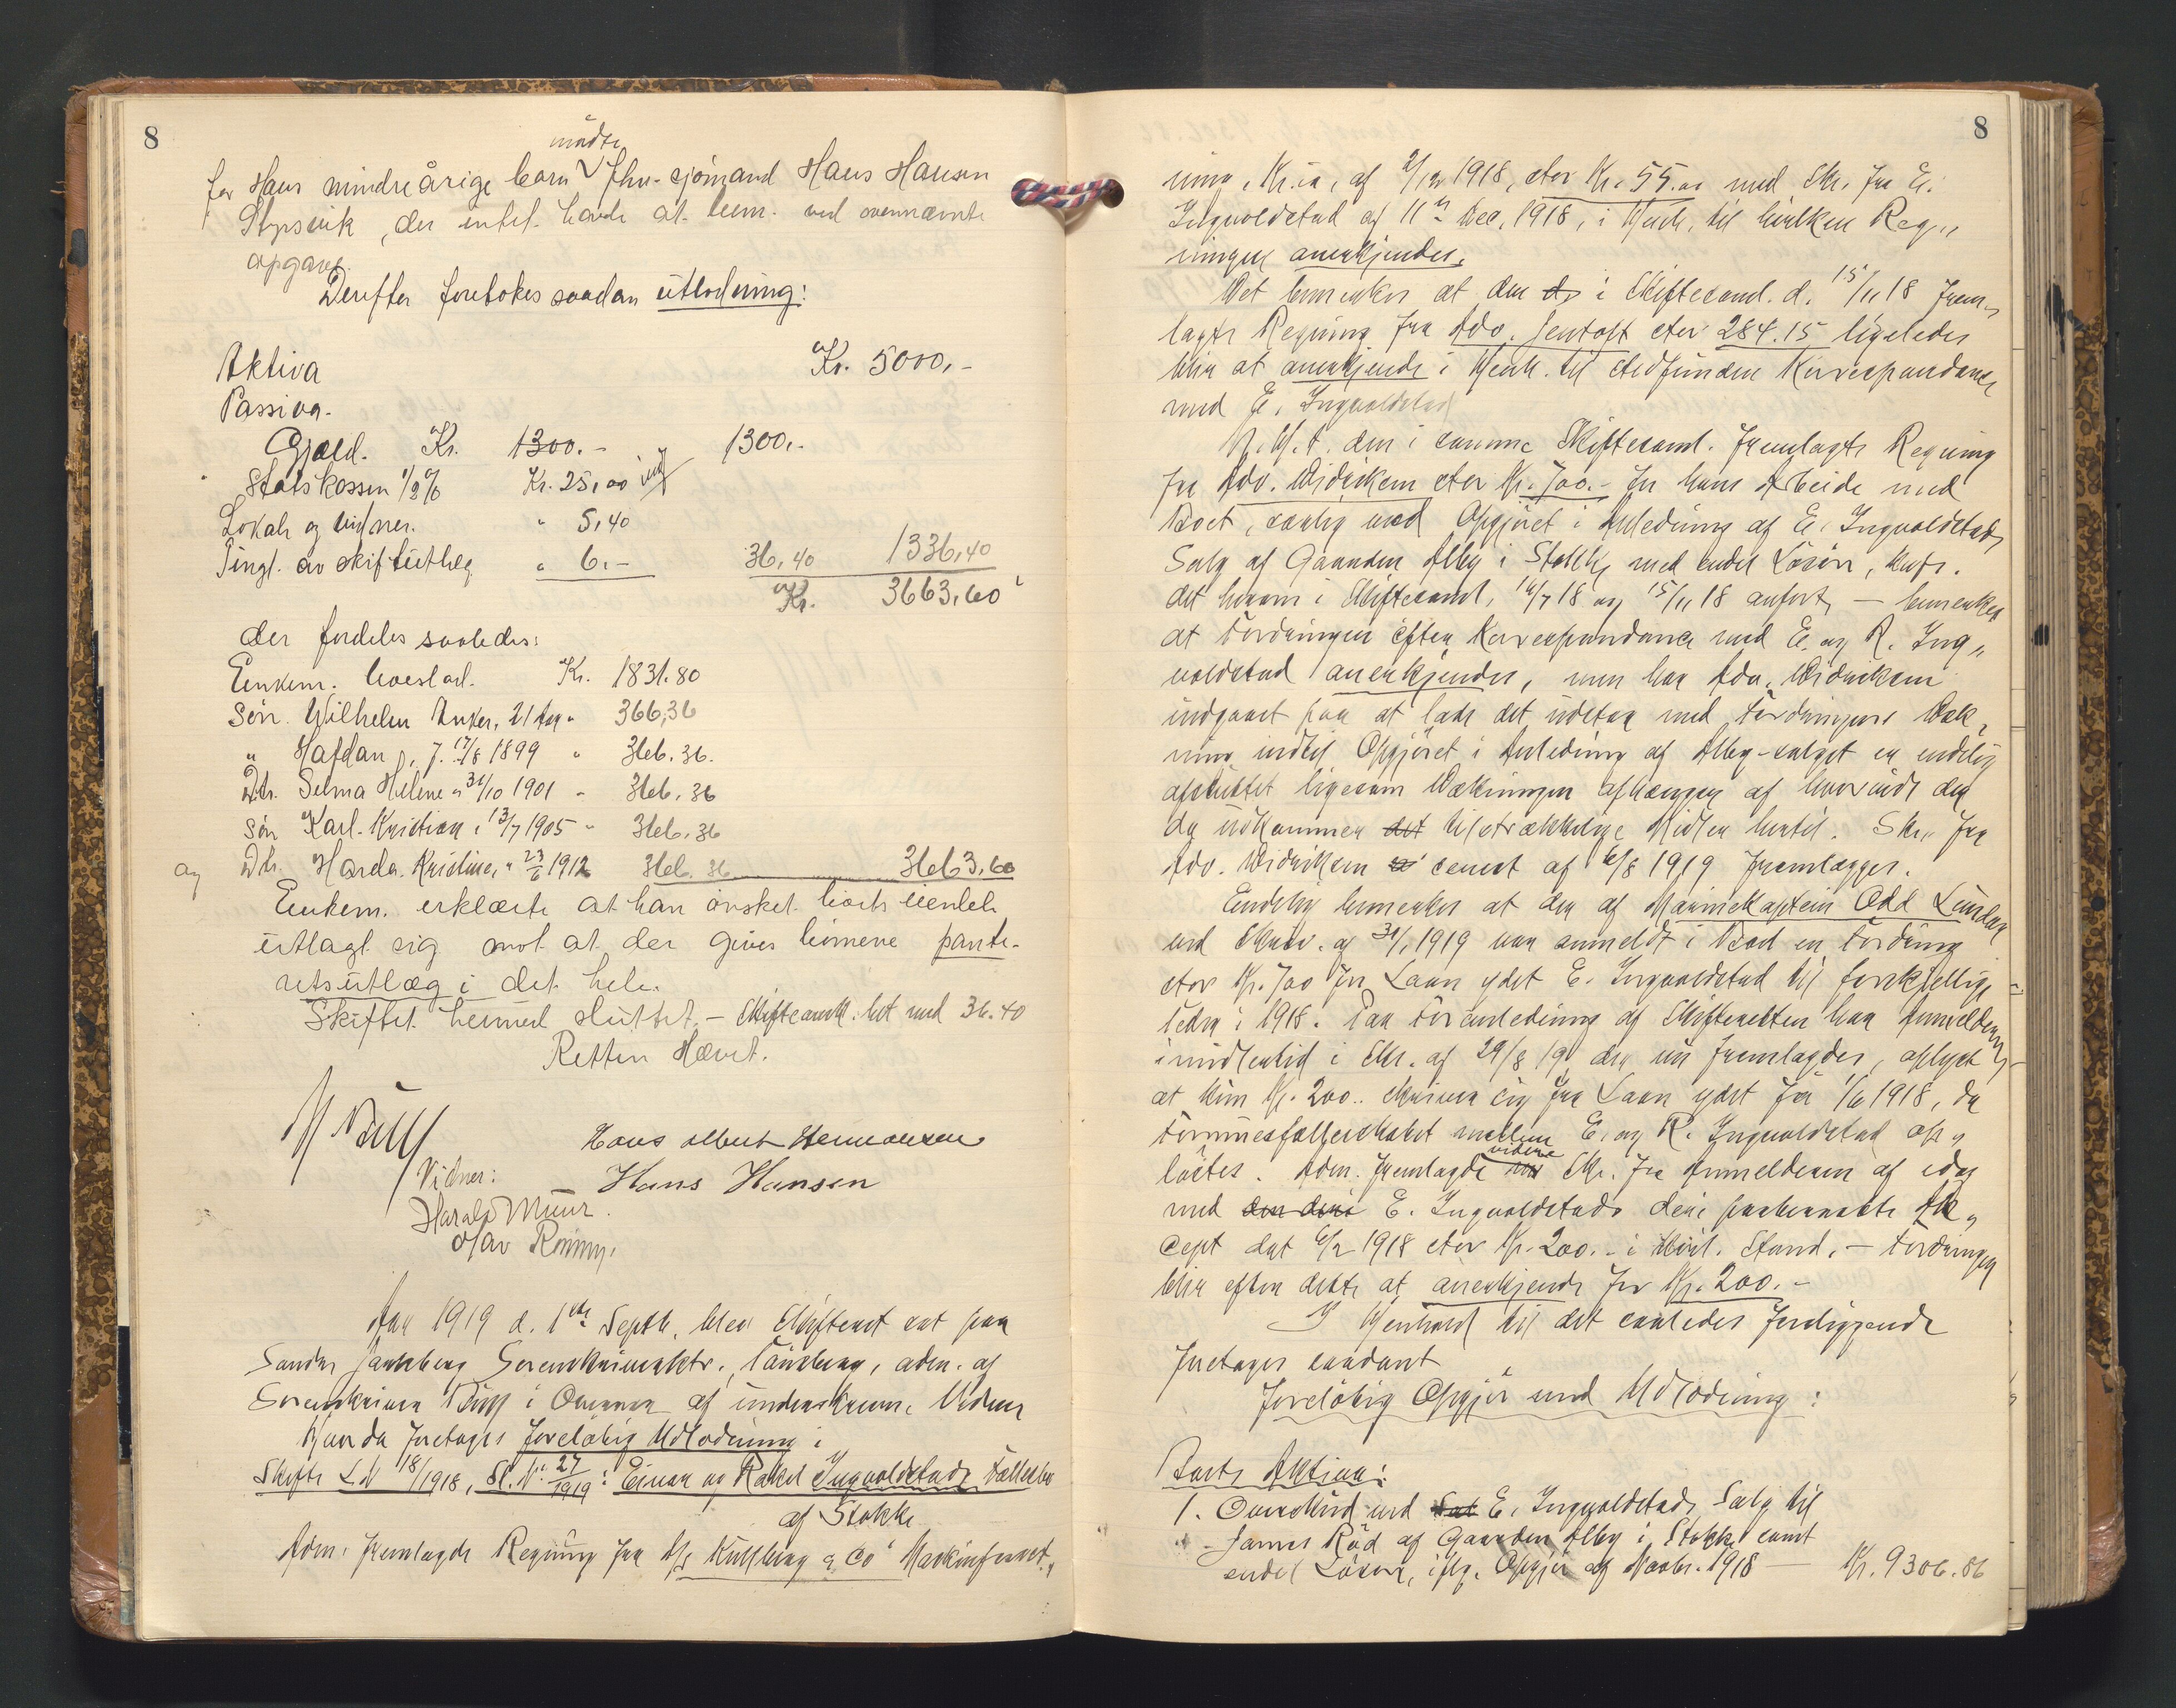 8
mødte
for Hans mindreårige barn fhv. sjømand Hans Hansen
, der intet havde at bem. ved ovennævnte
opgave.
Derefter foretokes saadan utlodning:
Aktiva Kr. 5000,-
Passiva.
Gjæld. Kr. 1300.- 1300,-
Statskassen 1/2 % Kr. 25,00
Lokale og vidner. " 5,40
Tingl. av skifteutlæg " 6.- 36,40 1336,40
Kr. 3663,60
der fordeles saaledes:
Enkem. hovedlod. Kr. 1831.80
Søn Wilhelm Anker, 21 " 366,36
" Halfdan, f. 17/8 1899 " 366.36.
Dtr. Selma Helene " 31/10 1901 " 366,36
søn Karl Kristian " 13/7 1905 " 366,36
og Dtr. Harda Kristine, " 23/6 1912 366.36 3663,60
Enkem. erklærte at han ønsket boets eiendele
utlagt sig mot at der gives børnene pante-
retsutlæg i det hele.
Skiftet hermed sluttet. - bet med 36.40
Retten Hævet.
Hans Albert Hermansen
Vidner: Hans Hansen
Harald Muur.
Olav Ronning.
Aar 1919 d. 1ste Septb. blev Skifteret sat paa
Søndre Jarlsberg Sorenskriverktr., Tønsberg, adm. af
Sorenskriver i Overvær af underskrevne Vidner
Hvorda foretages foreløbig Udlodning i
Skifte L.N 18/1918, Sk. No 27/1919: Einar og Rakel Ingvoldstads Fællesbo
af Stokke
Adm. fremlagde Regning fra A/S Kullberg & Co Maskinforret.,
8
ning, Kr.ia, af 2/12 1918, stor Kr. 55.00 med Skr. fra E.
Ingvoldstad af 11te Dec. 1918, i Henh. til hvilken Reg,,
ningen anerkjendes.
Det bemerkes at den i Skiftesaml. d. 15/11 18 frem-
lagte Regning fra Adv. Jentoft stor 284.15 ligeledes
blir at anerkjende i Henh. til stedfunden Korrespondance
med E. Ingvoldstad
den i samme Skiftesaml. fremlagte Regning
fra Adv. Didriksen stor Kr. 700.- for hans Arbeide med
Boet, særlig med Opgjøret i Anledning af E. Ingvoldstads
Salg af Gaarden Alby i Stokke med endel Løsøre, kfr.
det herom i Skiftesaml. 16/7 18 og 15/11 18 anførte, - bemerkes
at Fordringen efter Korrespondance med E. og R. Ing,,
voldstad anerkjendes, men har Adv. Didriksen
indgaaet paa at lade det udstaa med Fordringens Dæk,
ning indtil Opgjøret i Anledning af Alby-salget er endelig
afsluttet ligesom Dækningen afhænger af hvorvidt der
da udkommer tilstrækkelige Midler hertil. Skr. fra
Adv. Didriksen senest af 6/8 1919 fremlægges.
Endelig bemerkes at der af Marinekaptein Odd Lundar
ved Skriv. af 31/1 1919 var anmeldt i Boet en Fordring
stor Kr. 700 for Laan ydet E. Ingvoldstad til forskjellige
Tider i 1918. Paa Foranledning af Skifteretten har Anmelderen
imidlertid i Skr. af 29/8 19 der nu fremlagdes, oplyst
at kun Kr. 200.. skriver sig fra Laan ydet før 1/6 1918, da
Formuesfællesskabet mellem E. og R. Ingvoldstad op,
løstes. Adm. fremlagde videre Skr. fra Anmelderen af idag
med E. Ingvoldstads deri paaberaabte Ak,
cept dat 6/2 1918 stor Kr. 200.- i Stand. - Fordringen
blir efter dette at anerkjende for Kr. 200.-
I Henhold til det saaledes foreliggende
foretages saadant
foreløbig Opgjør med Udlodning:
Boets Aktiva:
1. Overskud ved E. Ingvoldstads Salg til
James Rød af Gaarden Alby i Stokke samt
endel Løsøre, iflg. Opgjør af Novbr. 1918 — Kr. 9306.86